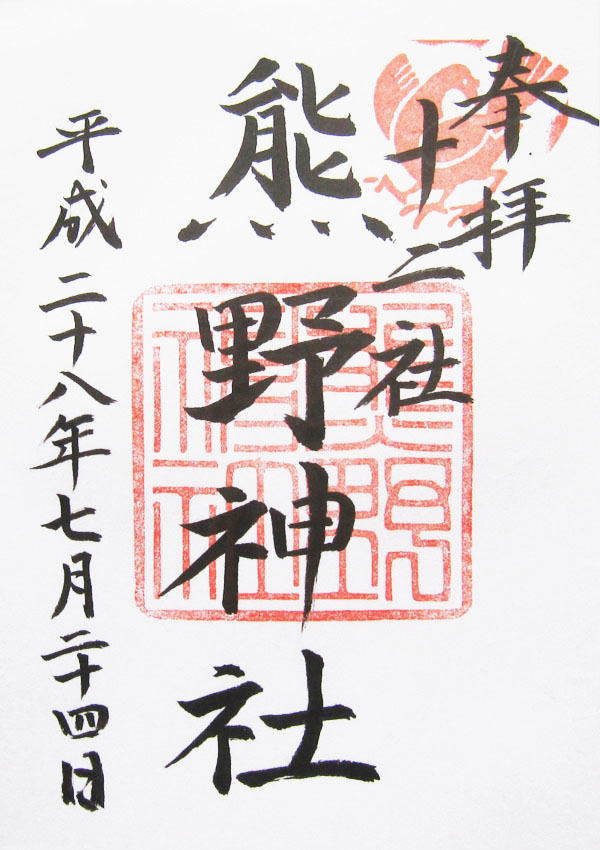 奉拝
十二社
熊野神社
平成二十八年七月二十四日